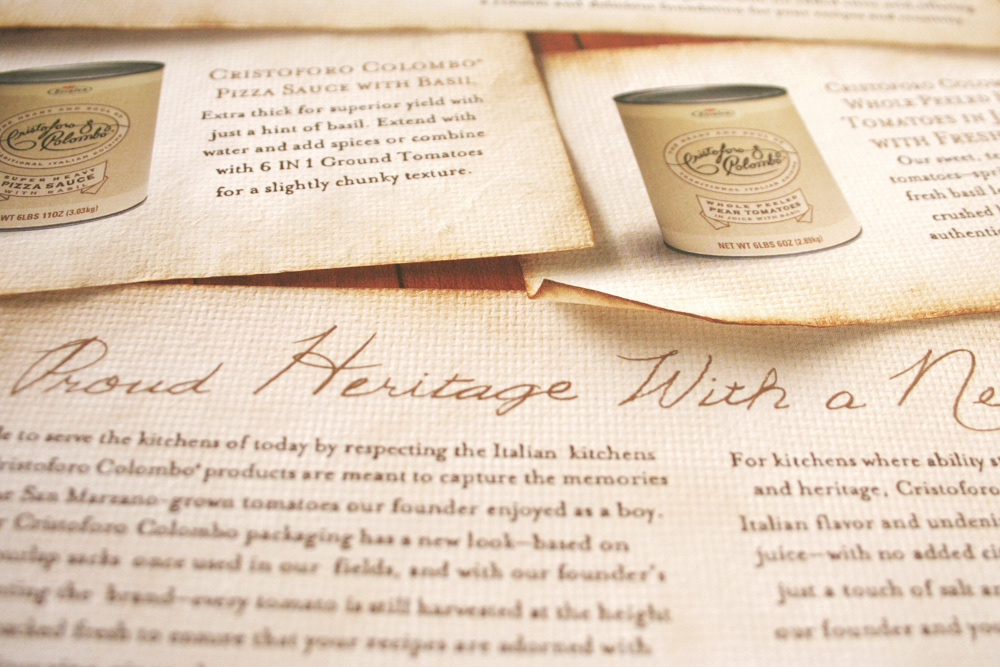 CRISTOFORO COLOMBO®
PIZZA SAUCE WITH BASIL
Extra thick for superior yield with
just a hint of basil. Extend with
water and add spices or combine
with 6 IN 1 Ground Tomatoes
for a slightly chunky texture.
THE HEART AND SOUL OF
Cristoforo
Colombo
TRADITIONAL ITALIAN
SUPER HEAVY
PIZZA SAUCE
WITH BASIL
WT 6LBS 11OZ (3.03kg)
THE HEART AND SOUL OF
Cristoforo
Colombo
TRADITIONAL ITALIAN
WHOLE PEELED
PEAR TOMATOES
IN JUICE WITH BASIL
NET WT 6LBS 6OZ (2.89kg)
CRISTOFORO COLOM
WHOLE PEELED
TOMATOES IN J
WITH FRESH
Our sweet, to
tomatoes—spr
fresh basil l
crushed
authentic
Proud Heritage With a Ne
to serve the kitchens of today by respecting the Italian kitchens
Cristoforo Colombo® products are meant to capture the memories
San Marzano-grown tomatoes our founder enjoyed as a boy.
Cristoforo Colombo packaging has a new look—based on
burlap sacks once used in our fields, and with our founder's
the brand—every tomato is still harvested at the height
fresh to ensure that your recipes are adorned with
For kitchens where ability
and heritage, Cristoforo
Italian flavor and undeni
juice—with no added ci
just a touch of salt
our founder and yo